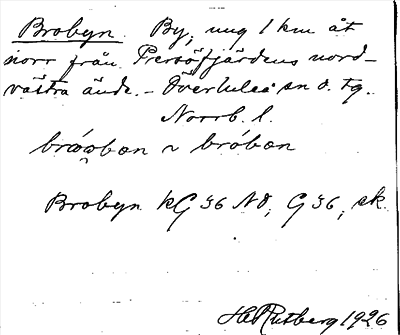 Brobyn. By, ung 1 km åt
norr från Persöfjärdens nord-
västra ände. - Överluleå sn o. tg.
Norrb. l.
bråobæn ~ bróbæn
Brobyn kG 36 NO, G 36, sk.
H Rutberg 1926